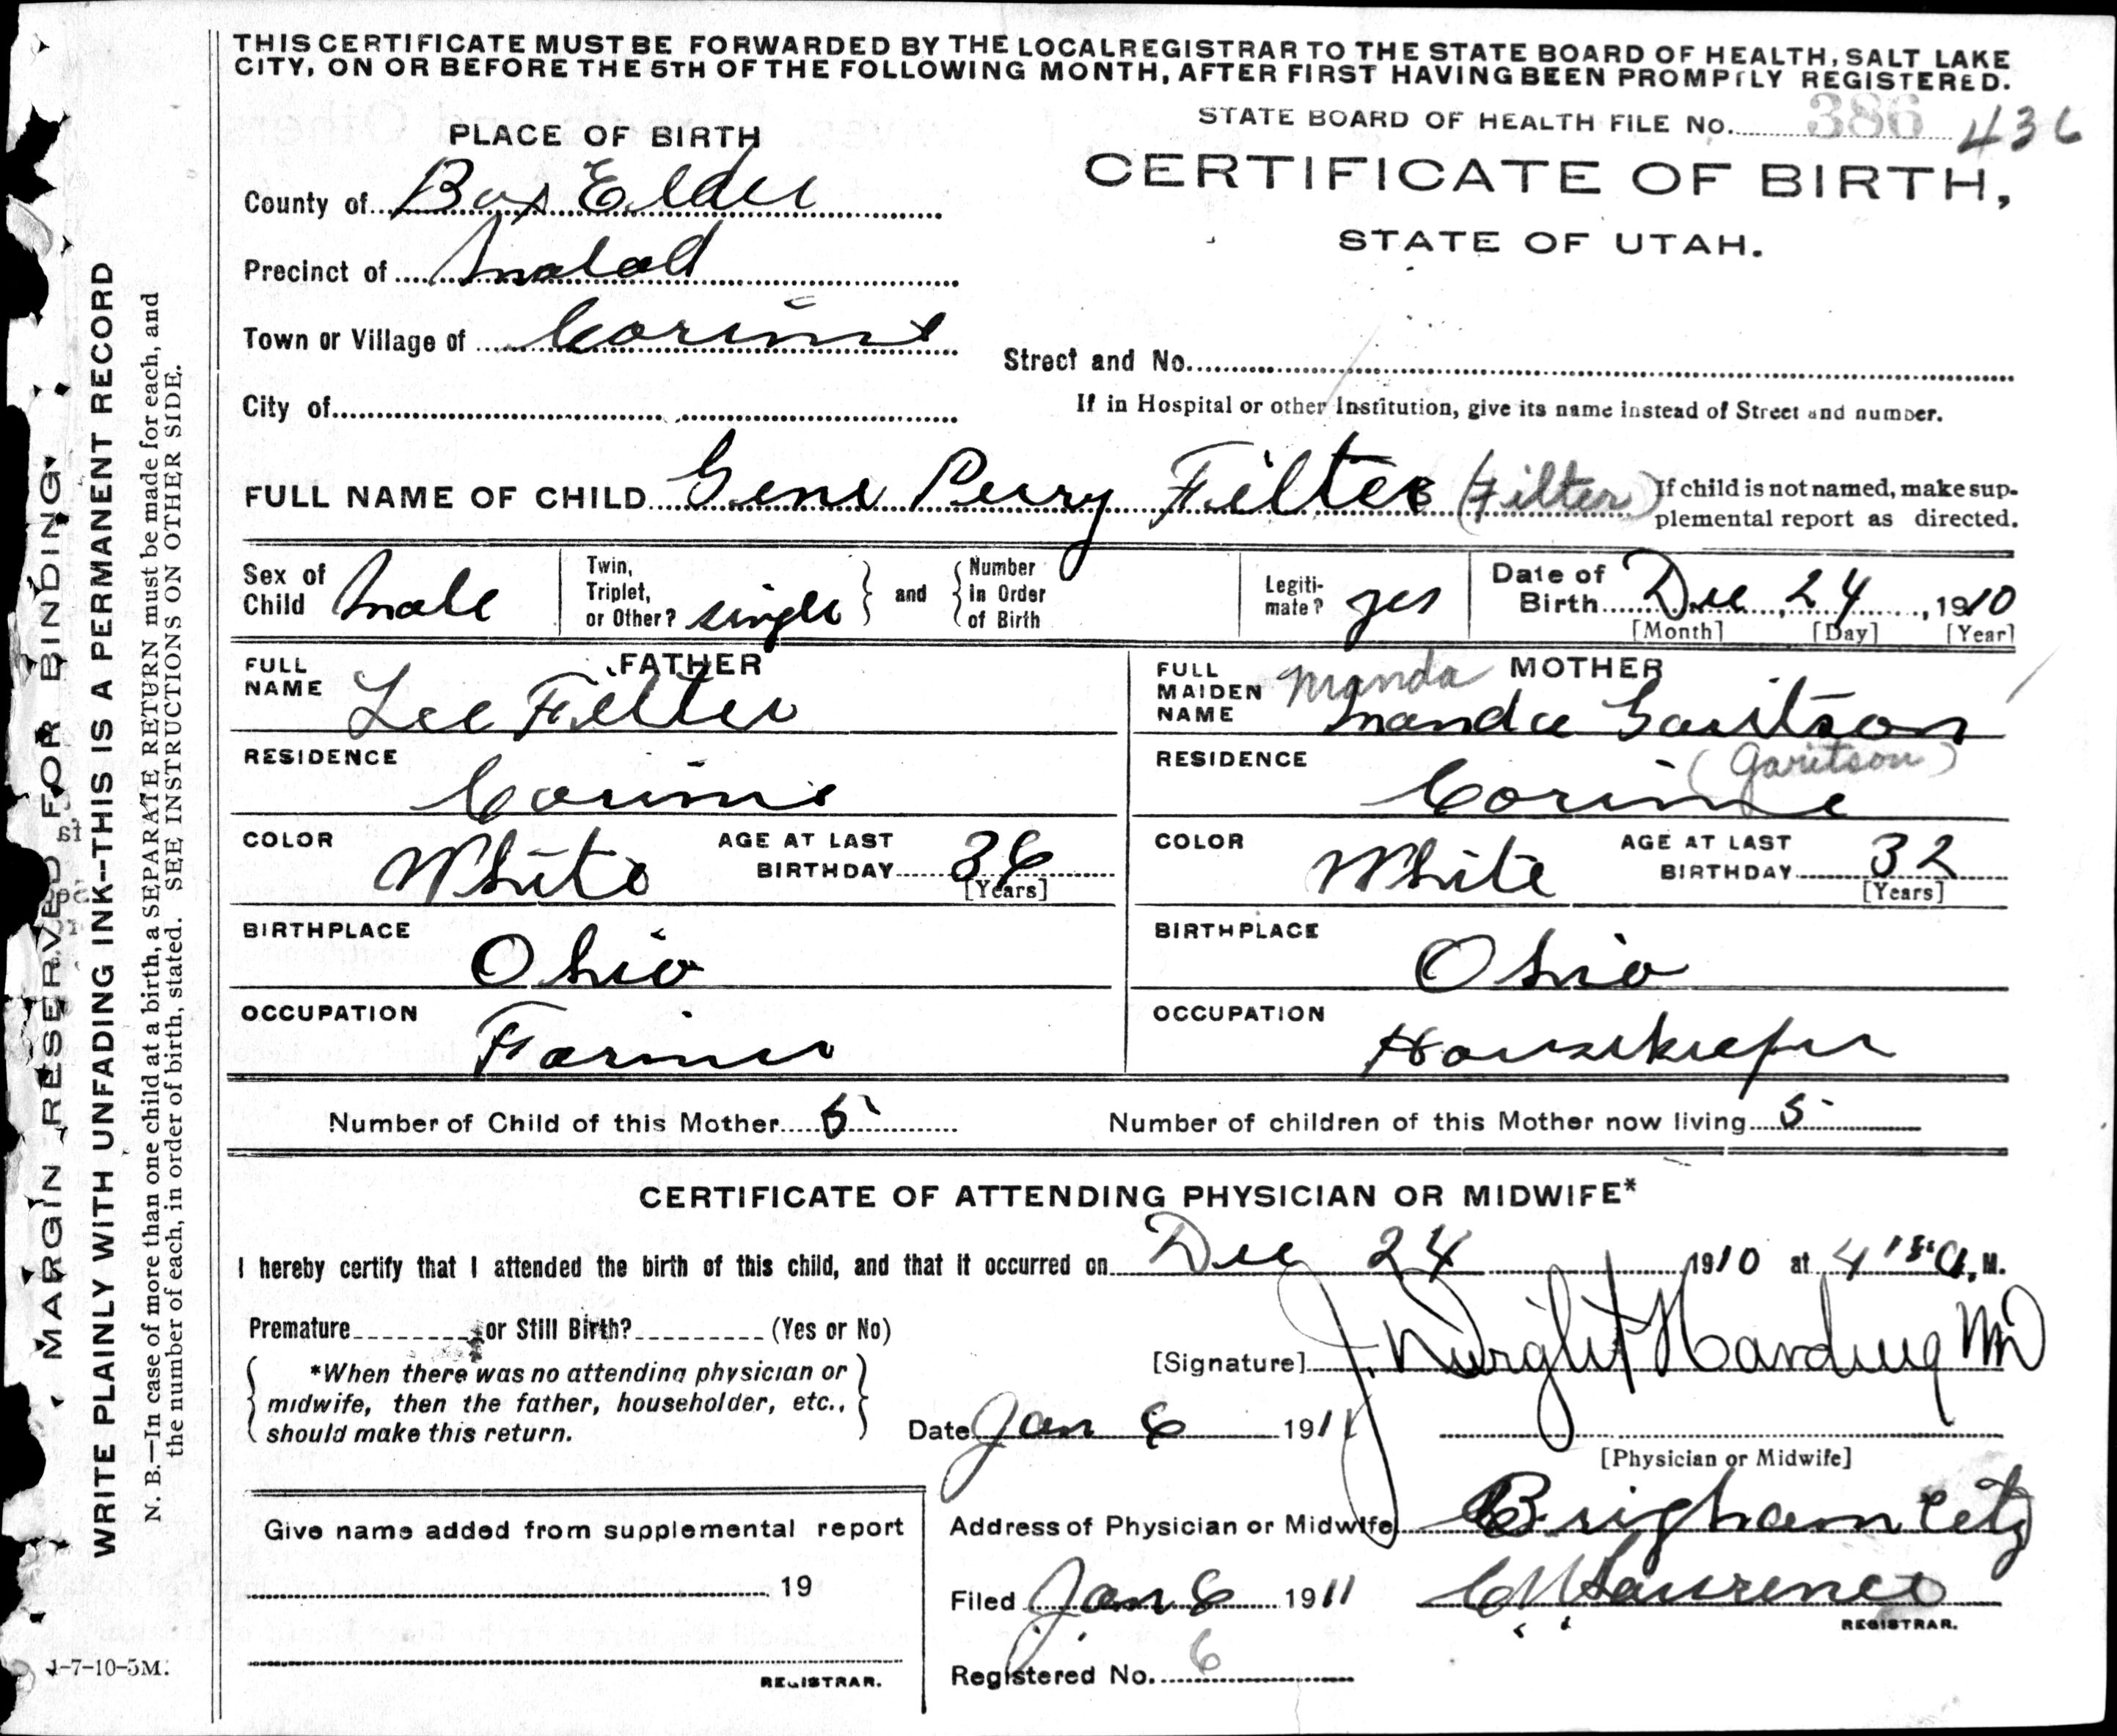 THIS CERTIFICATE MUST BE FORWARDED BY THE LOCAL REGISTRAR TO THE STATE BOARD OF HEALTH, SALT LAKE
CITY, ON OR BEFORE THE 5TH OF THE FOLLOWING MONTH, AFTER FIRST HAVING BEEN PROMPTLY REGISTERED.
STATE BOARD OF HEALTH FILE No. 386 436
PLACE OF BIRTH
CERTIFICATE OF BIRTH,
STATE OF UTAH.
County of Box Elder
Precinct of Malad
Town or Village of Corinne
Street and No.
City of
If in Hospital or other Institution, give its name instead of Street and number.
FULL NAME OF CHILD Gene Perry Filter (Filter) If child is not named, make sup-
plemental report as directed.
Sex of Child Male
Twin, Triplet, or Other? single and Number in Order of Birth
Legiti-mate? yes
Date of Birth Dec, 24, 1910
[Month] [Day] [Year]
FATHER
FULL NAME Lee Filter
RESIDENCE Corinne
COLOR White AGE AT LAST BIRTHDAY 36
[Years]
BIRTHPLACE Ohio
OCCUPATION Farmer
MOTHER
FULL MAIDEN NAME Manda Manda Garitson
(Garitson)
RESIDENCE Corinne
COLOR White AGE AT LAST BIRTHDAY 32
[Years]
BIRTHPLACE Ohio
OCCUPATION Housekeeper
Number of Child of this Mother 5 Number of children of this Mother now living 5
CERTIFICATE OF ATTENDING PHYSICIAN OR MIDWIFE*
I hereby certify that I attended the birth of this child, and that it occurred on Dec 24 1910 at 4 A. M.
Premature or Still Birth? (Yes or No)
*When there was no attending physician or
midwife, then the father, householder, etc.,
should make this return.
[Signature] J. Dwight Harding MD
Date Jan 6 1911
[Physician or Midwife]
Address of Physician or Midwife Brigham City
Give name added from supplemental report
19
REGISTRAR.
Filed Jan 6 1911 C M Laurence
REGISTRAR.
Registered No. 6
1-7-10-5M.
MARGIN RESERVED FOR BINDING
WRITE PLAINLY WITH UNFADING INK--THIS IS A PERMANENT RECORD
N. B.—In case of more than one child at a birth, a SEPARATE RETURN must be made for each, and
the number of each, in order of birth, stated. SEE INSTRUCTIONS ON OTHER SIDE.